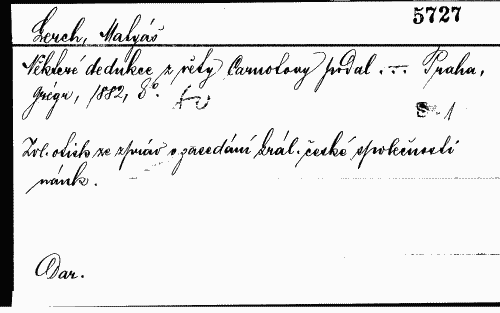 5727
Lerch, Matyáš
Některé dedukce z věty Carnotovy podal . — Praha,
Grégr, 1882, 8°.
1
Zvl. otisk ze zpráv o zasedání král. české společnosti
náuk.
Dar.